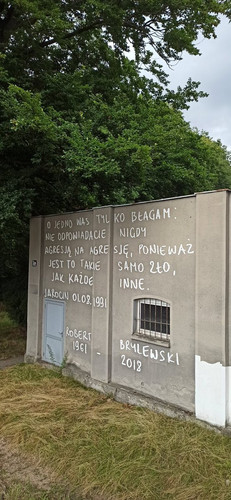 O JEDNO WAS TYLKO BŁAGAM:
NIE ODPOWIADAJCIE NIGDY
AGRESJĄ NA AGRESJĘ, PONIEWAŻ
JEST TO TAKIE SAMO ZŁO,
JAK KAŻDE INNE.
JAROCIN 01.08.1991
ROBERT BRYLEWSKI
1961 2018